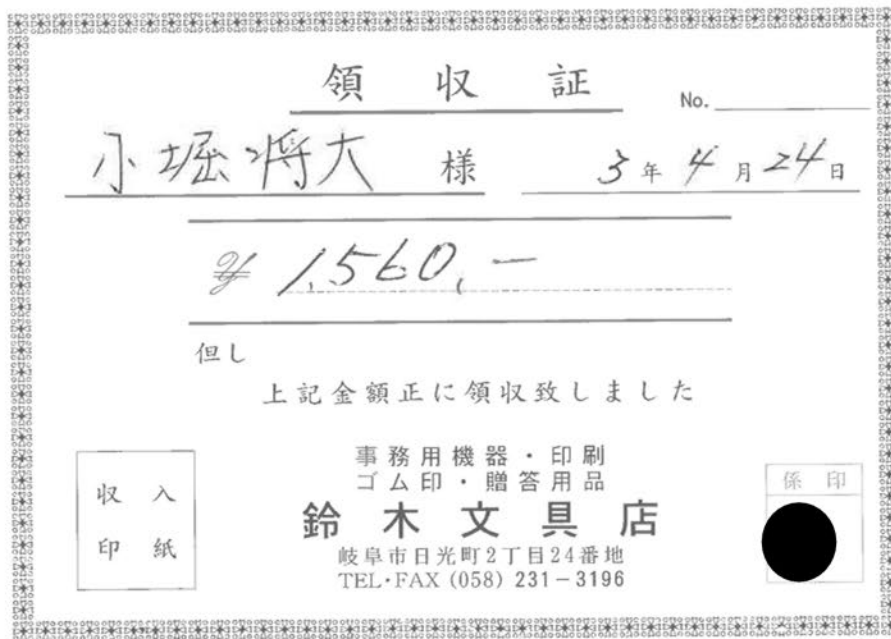 領収証
No.
小堀将大 様 3年4月24日
¥ 1,560,-
但し
上記金額正に領収致しました
収入
印紙
事務用機器・印刷
ゴム印・贈答用品
鈴木文具店
岐阜市日光町2丁目24番地
TEL・FAX (058) 231-3196
係印